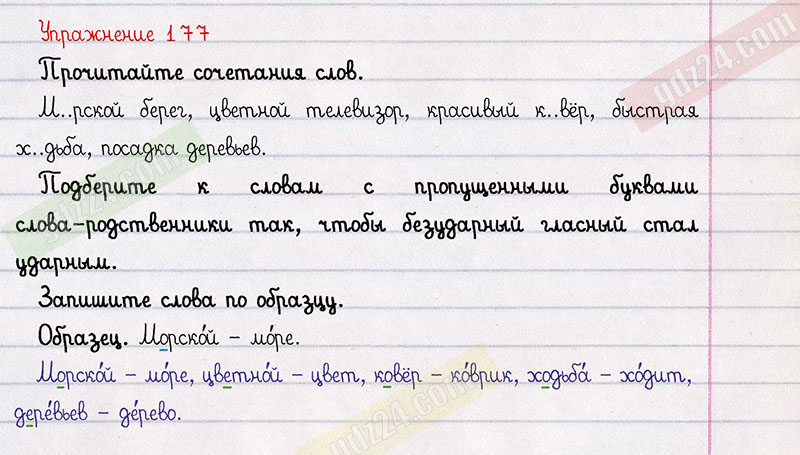 Упражнение 177
Прочитайте сочетания слов.
М..рской берег, цветной телевизор, красивый к..вёр, быстрая
х..дьба, посадка деревьев.
Подберите к словам с пропущенными буквами
слова-родственники так, чтобы безударный гласный стал
ударным.
Запишите слова по образцу.
Образец. Морско́й – мо́ре.
Морско́й – мо́ре, цветно́й – цвет, ковёр – ко́врик, ходьба́ – хо́дит,
дере́вьев – де́рево.
gdz24.com
gdz24.com
gdz24.com